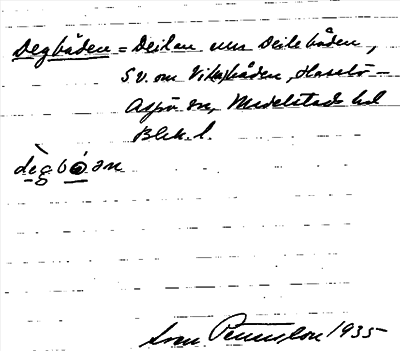 Degbåden = Deilen eller Deilebåden,
S.V. om Vita båden, Haselö –
Aspö sn, Medelstads hd
Blek. l.
dègbó̱ən
Sven Benson 1935